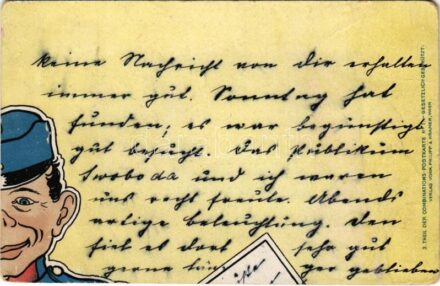 keine Nachricht von dir erhalten
immer gut. Sonntag hat
funden; es war begünstigt
gut besucht. Das Publikum
Swoboda und ich waren
uns recht freute. Abends
artige Beleuchtung. Den
fiel es dort sehr gut
gerne län ger geblieben
2. TEIL DER COMBINATIONS-POSTKARTE
GESETZLICH GESCHÜTZT.